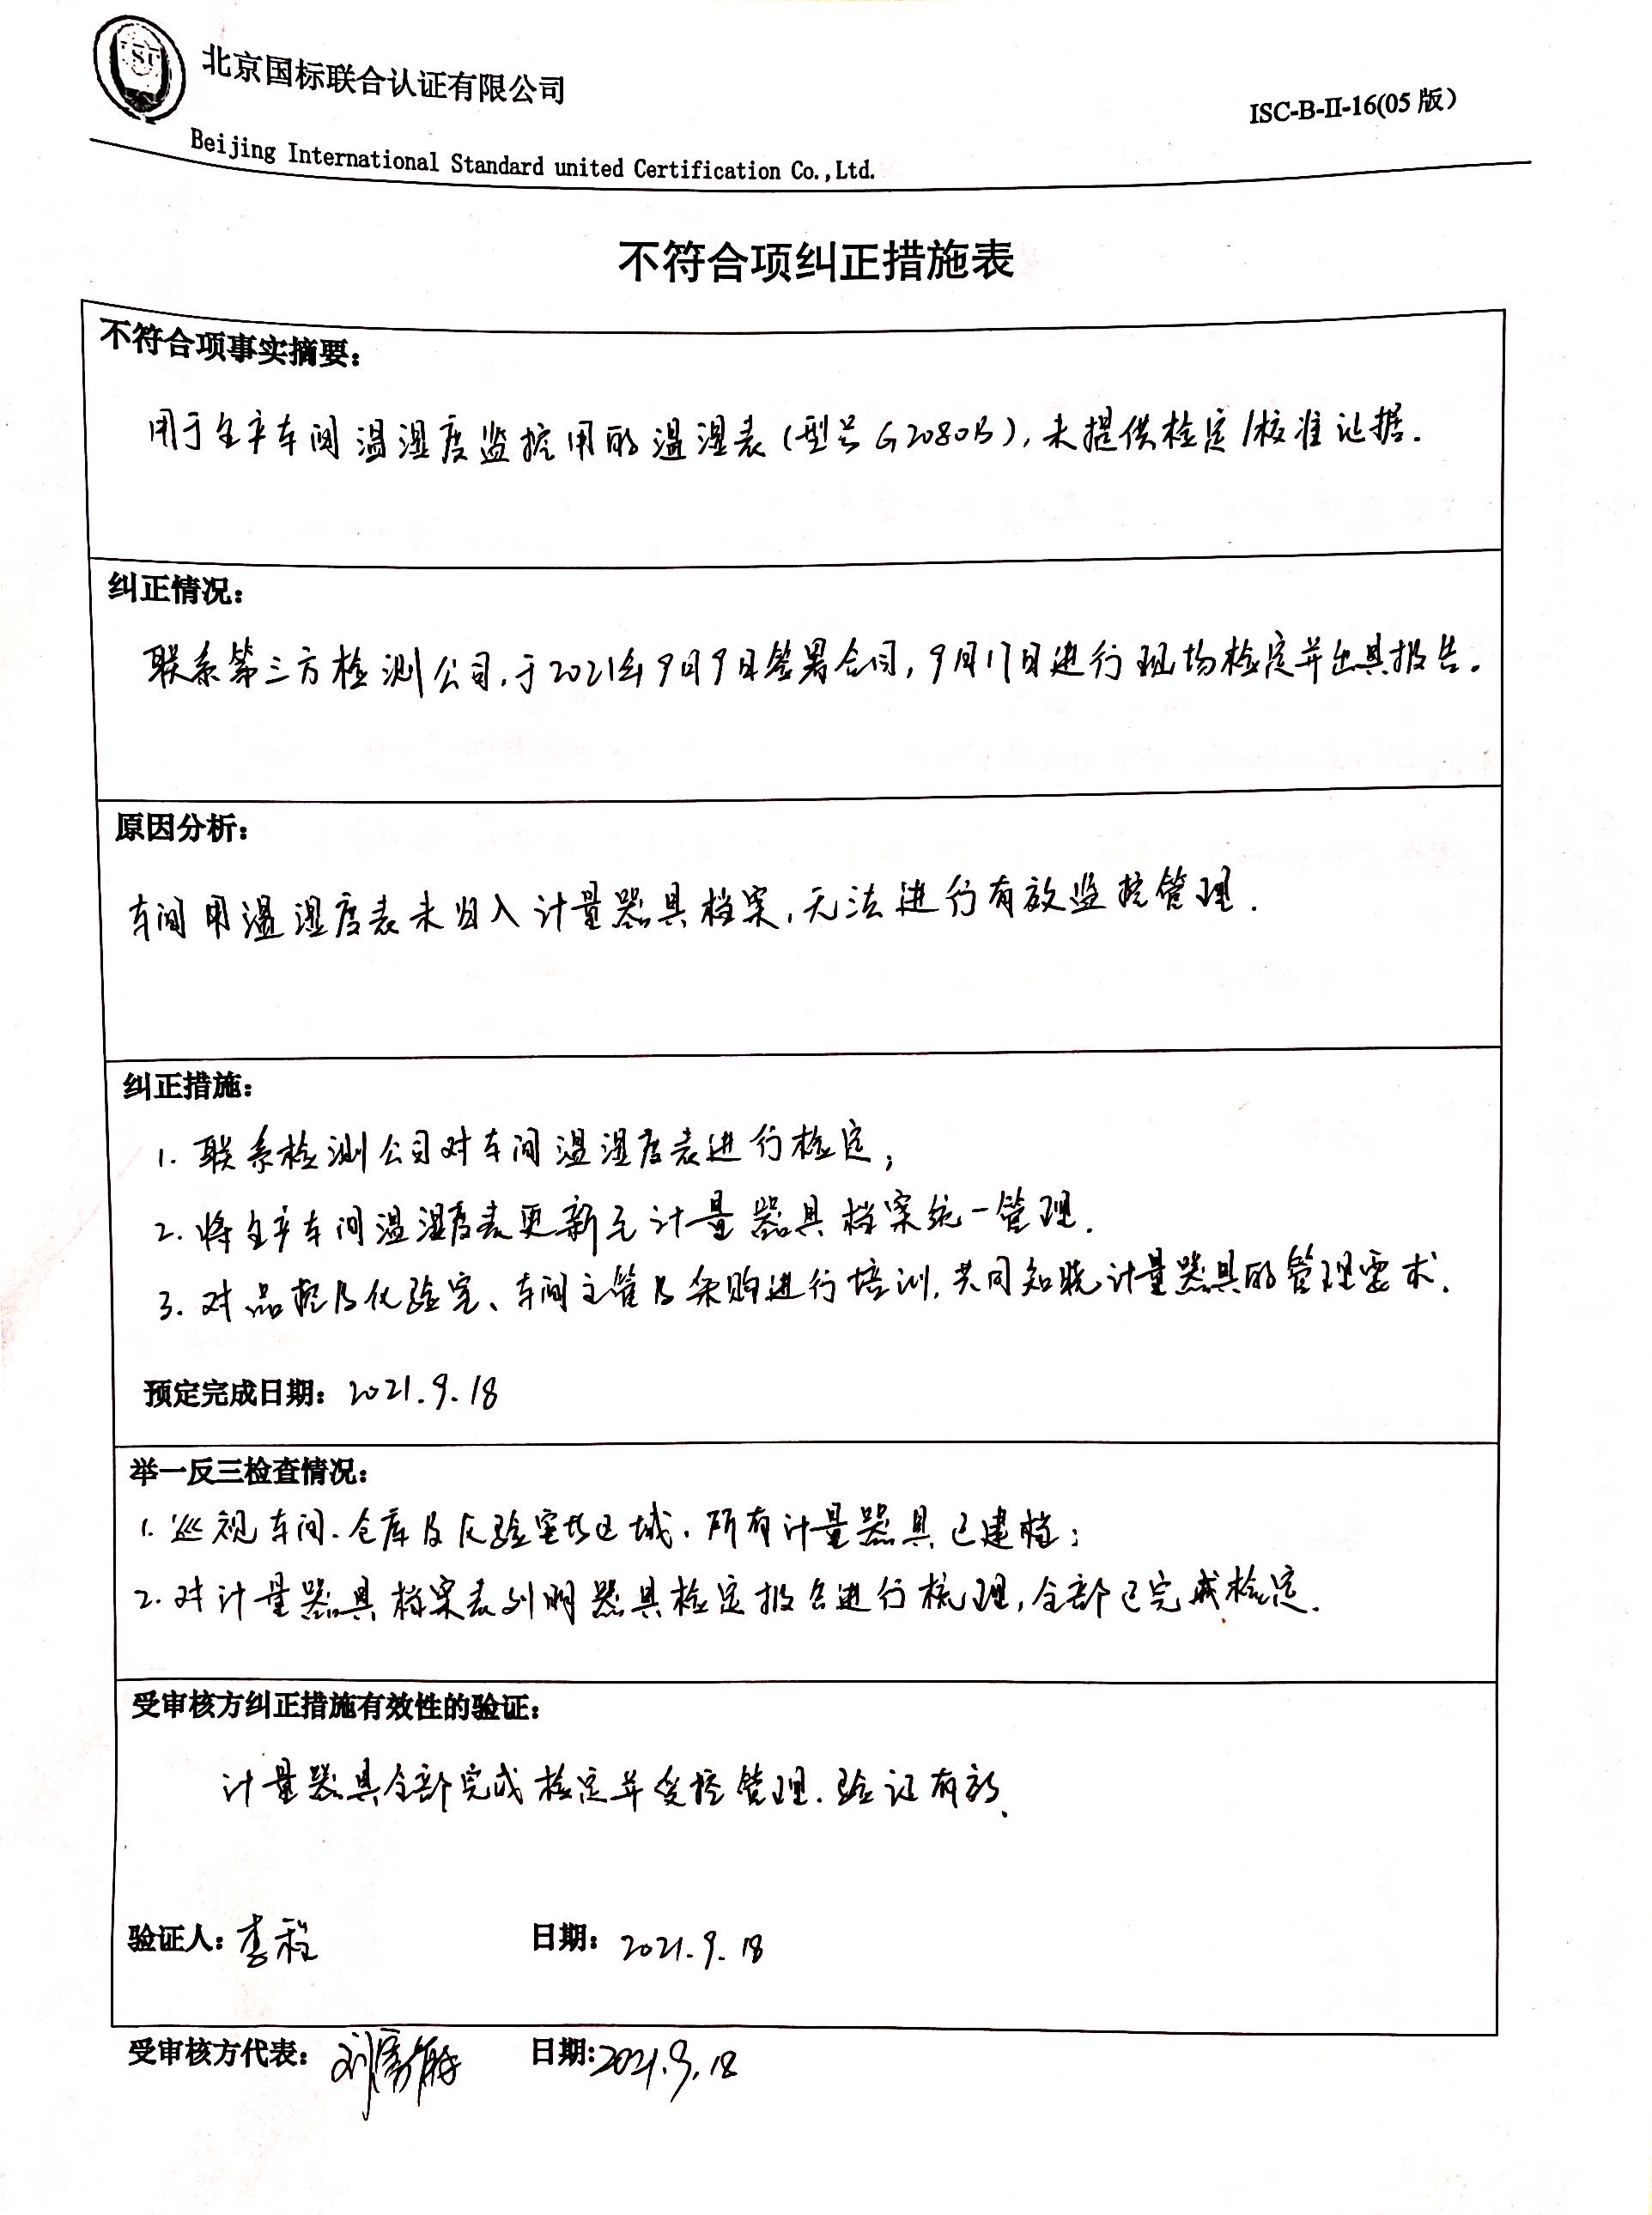 北京国标联合认证有限公司
ISC-B-II-16(05版)
Beijing International Standard united Certification Co.,Ltd.
不符合项纠正措施表
不符合项事实摘要:
用于生产车间温湿度监控用的温湿表(型号G2080B),未提供检定/校准证据.
纠正情况:
联系第三方检测公司,于2021年9月9日签署合同,9月17日进行现场检定并出具报告.
原因分析:
车间用温湿度表未归入计量器具档案,无法进行有效监控管理.
纠正措施:
1. 联系检测公司对车间温湿度表进行检定;
2. 将生产车间温湿度表更新至计量器具档案统一管理.
3. 对品控及化验室、车间主管及采购进行培训,共同知晓计量器具的管理要求.
预定完成日期: 2021.9.18
举一反三检查情况:
1. 巡视车间、仓库及化验室区域,所有计量器具已建档;
2. 对计量器具档案表列明器具检定报告进行梳理,全部已完成检定.
受审核方纠正措施有效性的验证:
计量器具全部完成检定并受控管理.验证有效.
验证人: 李程 日期: 2021.9.18
受审核方代表: 日期: 2021.9.18